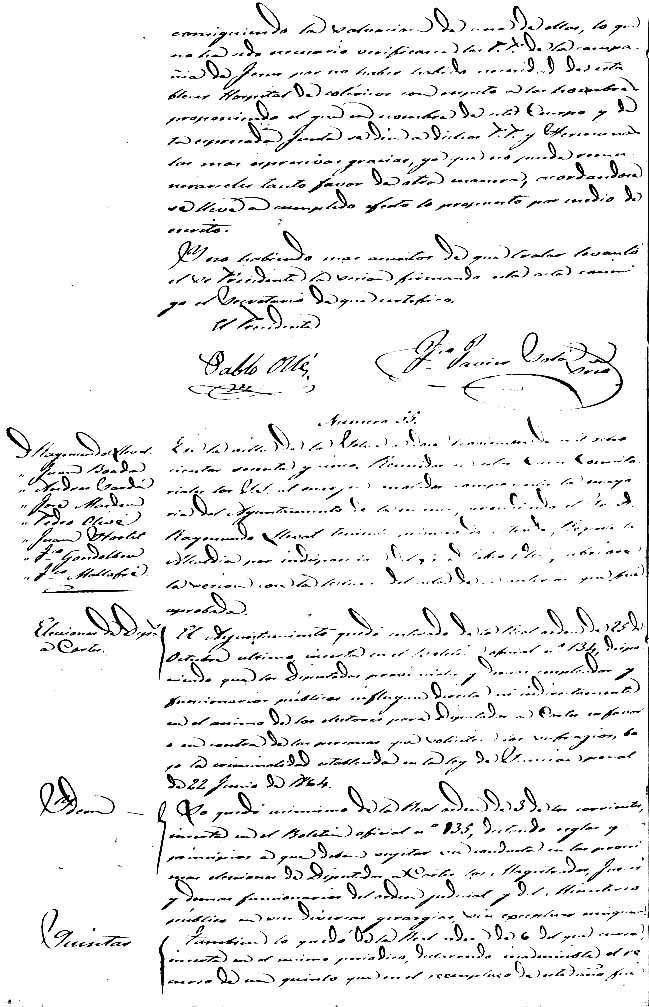 consiguiendo la salvacion de uno de ellos, lo que
no ha sido necesario verificarse los P.P. de la compa-
ñia de Jesus por no haber habido necesidad de esta-
blecer Hospital de coléricos con respeto a los hombres,
proponiendo el que en nombre de este Cuerpo y de
la espresada Junta se dén a dichos P.P. y Hermanas
las mas espresivas gracias, ya que no puede remu-
nerarseles tanto favor de otra manera, acordandose
se lleve a cumplido efecto lo propuesto por medio de
escrito.
Y no habiendo mas asuntos de que tratar levantó
el Sr Presidente la sesion firmando esta acta conmi-
go el Secretario de que certifico.
El Presidente
Pablo Ollé
Fco Javier Srio
Numero 55.
D Raymundo
" Juan Boada
" Andres
" José
" Pedro Olivé
" Juan
" Fco
" Fco Mallafré
En la villa de la a de mil ocho
cientos sesenta y cinco. Reunidos en estas Casas Consisto-
riales los Sres al margen notados componiendo la mayo-
ria del Ayuntamiento de la misma, presididos el Sr D.
Raymundo teniente primero de Alcalde, Regente la
Alcaldia por indisposicion del Sr D. Pablo Ollé, abriose
la sesion con la lectura del acta de la anterior que fué
aprobada.
Elecciones de Dipus
a Cortes.
El Ayuntamiento quedó enterado de la Real orden de 25 de
Octubre ultimo, inserta en el Boletin oficial nº 134, dispo-
niendo que los Diputados provinciales y demas empleados y
funcionarios públicos influyan directa ni indirectamente
en el animo de los electores para Diputados a Cortes en favor
o en contra de las personas que soliciten sus sufragios, ba-
jo la criminalidad establecida en la ley de Sancion penal
de 22 Junio de 1864.
Idem
Lo quedó asimismo de la Real orden de 3 de los corrientes,
inserta en el Boletin oficial nº 135, dictando reglas y
principios a que deban sugetar su conducta en las procsi-
mas elecciones de Diputados a Cortes los Magistrados, Jueces
y demas funcionarios del orden judicial y del Ministerio
público en sus diversas gerarquias, sin escepcion ninguna.
Quintas
Tambien lo quedó de la Real orden de 6 del que cursa
inserta en el mismo periodico, declarando inadmisible el re-
curso de un quinto que en el reemplazo de este año fué